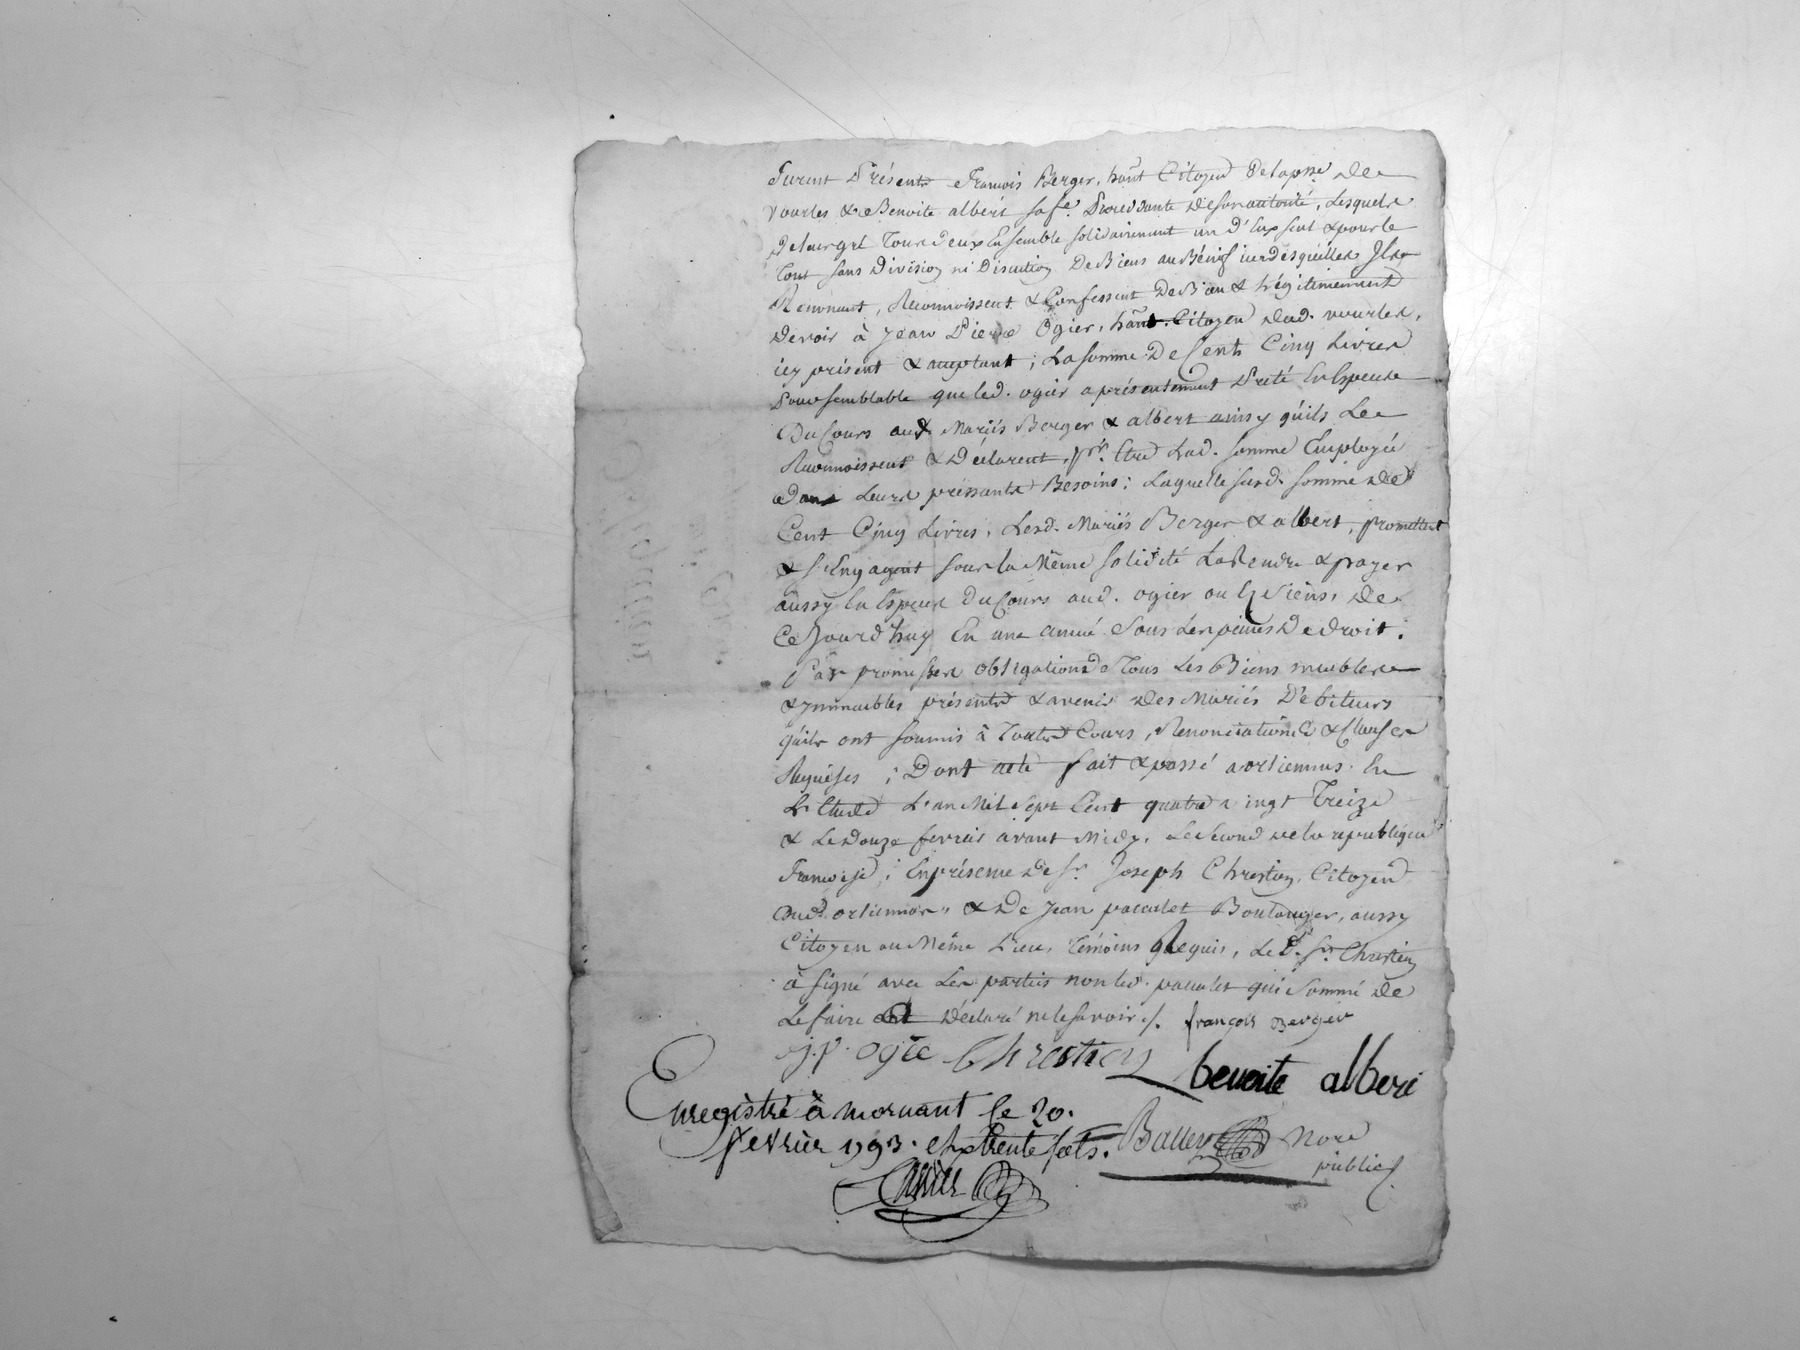 Furent Présents François Berger, hant Citoyen Delapsse De
vourles & Benoite albert safe. Procédante Desonautorité, Lesquels
Deleurgré Tous deux Ensemble solidairement un d'Eux seul & pour le
tout sans Division ni Discution De Biens au Bénéf Desquelles Ils
Renonent, Reconnoissent & Confessent De Bien & Légitimement
Devoir à Jean Pierre Ogier, hant. Citoyen dud. vourles,
icy présent & acceptant ; La somme De Cent Cinq Livres
Pour semblable que led. ogier a présentement Preté En Espece
Du Cours aud. Mariés Berger & albert ainsy qu'ils Le
Reconnoissent & Déclarent, pr. Etre Lad. somme Employée
a Dans Leurs pressants Besoins ; Laquelle susd. somme De
Cent Cinq Livres, Lesd. Mariés Berger & albert, promettent
& s'Engagent sous la Même solidité La Rendre & payer
aussy En Espece Du Cours aud. ogier ou Es Siens, De
Ce Jourd'huy En une année Sous Les peines De droit ;
Par promesses obligations De Tous Les Biens meubles
& ymmeubles présents & avenir Des Mariés Débiteurs
qu'ils ont soumis à Toutes Cours, Renonciations & Clauses
Requises ; Dont acte fait & passé a orliennas En
L'Etude L'an Mil Sept Cent quatre vingt Treize
& Le Douze fevrier avant Midy, Le Second de la republique
Françoise ; En présence De Sr. Joseph Chrestien, Citoyen
Dud. orliennas, & De Jean paculet Boulanger, aussy
Citoyen au Même Lieu, Témoins Requis, Led. Sr. Chrestien
à signé avec Les parties non led. paculet qui Sommé De
Le faire a Déclaré ne le savoir ./. françois Berger
j.p. ogie Chrestien benoite alberi
Enregistré à mornant le 20.
fevrier 1793. trente sols. Nore
public